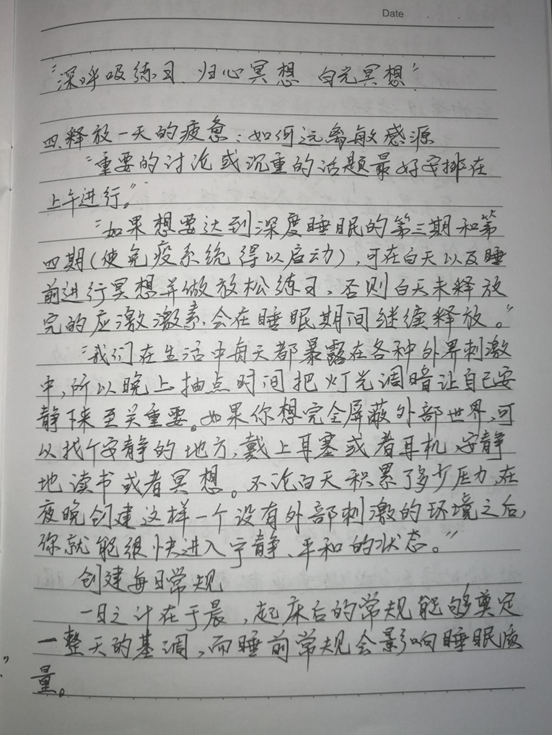 Date
“深呼吸练习 归心冥想 白光冥想”
四.释放一天的疲惫:如何远离敏感源
“重要的讨论或沉重的话题最好安排在
上午进行。”
“如果想要达到深度睡眠的第三期和第
四期(使免疫系统得以启动),可在白天以及睡
前进行冥想并做放松练习,否则白天未释放
完的应激激素,会在睡眠期间继续释放。”
“我们在生活中每天都暴露在各种外界刺激
中,所以晚上抽点时间把灯光调暗让自己安
静下来至关重要。如果你想完全屏蔽外部世界,可
以找个安静的地方,戴上耳塞或者耳机,安静
地读书或者冥想。不论白天积累了多少压力,在
夜晚创建这样一个没有外部刺激的环境之后,
你就能很快进入宁静、平和的状态。”
创建每日常规
一日之计在于晨,起床后的常规能够奠定
一整天的基调,而睡前常规会影响睡眠质
量。
”